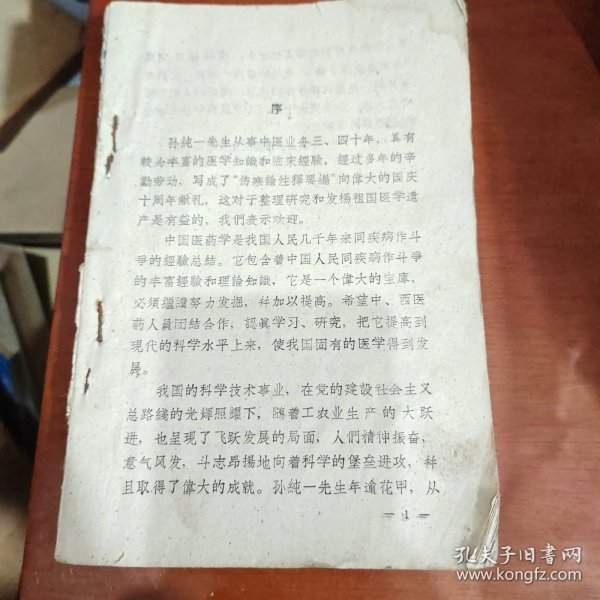 序
孙純一先生从事中医业务三、四十年，具有
較为丰富的医学知識和临床經驗，經过多年的辛
勤劳动，写成了“伤寒論注釋要編”向偉大的国庆
十周年献礼，这对于整理研究和发揚祖国医学遗
产是有益的，我們表示欢迎。
中国医药学是我国人民几千年来同疾病作斗
爭的經驗总结。它包含着中国人民同疾病作斗爭
的丰富經驗和理論知識，它是一个偉大的宝庫，
必須继續努力发掘，幷加以提高。希望中、西医
药人員团结合作，認眞学习、研究，把它提高到
現代的科学水平上来，使我国固有的医学得到发
展。
我国的科学技术事业，在党的建設社会主义
总路綫的光輝照耀下，随着工农业生产的大跃
进，也呈現了飞跃发展的局面，人們精神振奋，
意气风发，斗志昂揚地向着科学的堡垒进攻，幷
且取得了偉大的成就。孙純一先生年逾花甲，从
— 1 —
孔夫子旧书网
www.kongfz.com